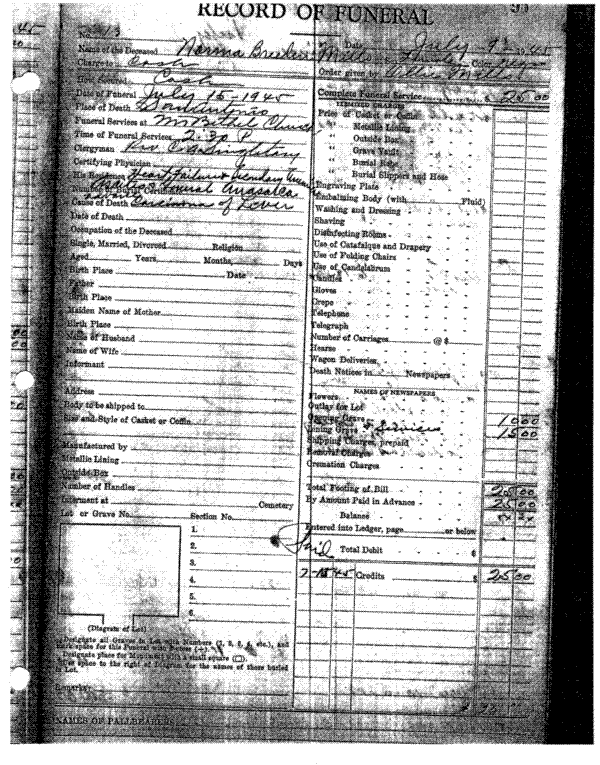 RECORD OF FUNERAL
No. 13
Date July 9 1945
Name of the Deceased Norma
Charge to Cash
Order given by Mills
How Secured Cash
Complete Funeral Service $ 25 00
Date of Funeral July 15-1945
ITEMIZED CHARGES
Place of Death
Price of Casket or Coffin
Funeral Services at Church
" Metallic Lining
Time of Funeral Services 2:30 P
" Outside Box
Clergyman Rev.
" Grave Vault
Certifying Physician
" Burial Robe
His Residence Heart Failure
" Burial Slippers and Hose
Engraving Plate
Cause of Death Carcinoma of Liver
Embalming Body (with Fluid)
Date of Death
Washing and Dressing
Occupation of the Deceased
Shaving
Single, Married, Divorced Religion
Disinfecting Rooms
Aged Years, Months, Days
Use of Catafalque and Drapery
Birth Place Date
Use of Folding Chairs
Father
Use of Candelabrum
Birth Place
Candles
Maiden Name of Mother
Gloves
Birth Place
Crepe
Name of Husband
Telephone
Name of Wife
Telegraph
Informant
Number of Carriages @ $
Hearse
Address
Wagon Deliveries
Body to be shipped to
Death Notices in Newspapers
Size and Style of Casket or Coffin
NAMES OF NEWSPAPERS
Flowers
Manufactured by
Outlay for Lot
Metallic Lining
Opening Grave 10 00
Outside Box
Lining Grave & Services 15 00
Number of Handles
Shipping Charges, prepaid
Interment at Cemetery
Removal Charges
Lot or Grave No. Section No.
Cremation Charges
Total Footing of Bill 25 00
By Amount Paid in Advance 25 00
Balance
Entered into Ledger, page or below
Paid Total Debit $
7-15 45 Credits $ 25 00
1.
2.
3.
4.
5.
6.
(Diagram of Lot)
Designate all Graves in Lot with Numbers (1, 2, 3, 4, etc.), and
mark space for this Funeral with Cross (+).
Designate place for Monument with a small square (□).
Use space to the right of Diagram for the names of those buried
in Lot.
Remarks:
NAMES OF PALLBEARERS